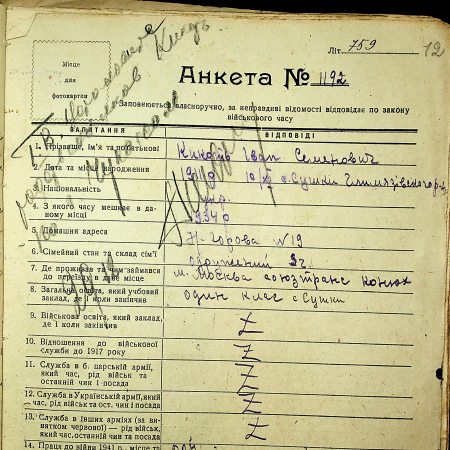 Літ. 759
12
Місце
для
фотокартки
Анкета № 1192
Заповнюється власноручно, за неправдиві відомості відповідає по закону
військового часу
ЗАПИТАННЯ
ВІДПОВІДІ
1. Прізвище, ім'я та по батькові
Іван Семенович
2. Дата та місце народження
с. Сушки
3. Національність
укр.
4. З якого часу мешкає в да-
ному місці
934 р
5. Домашня адреса
№ 19
6. Сімейний стан та склад сім'ї
одружений
7. Де проживав та чим займався
до переїзду в дане місце
м. Москва союзтранс конюх
8. Загальна освіта, який учбовий
заклад, де і коли закінчив
один клас с Сушки
9. Військова освіта, який заклад,
де і коли закінчив
Z
10. Відношення до військової
служби до 1917 року
Z
11. Служба в б. царській армії,
який час, рід військ та
останній чин і посада
Z
12. Служба в Українській армії, який
час, рід військ та ост. чин і посада
Z
13. Служба в інших арміях (за ви-
нятком червоної) — рід військ,
який час, останній чин та посада
Z
14. Праця до війни 1941 р., місце та